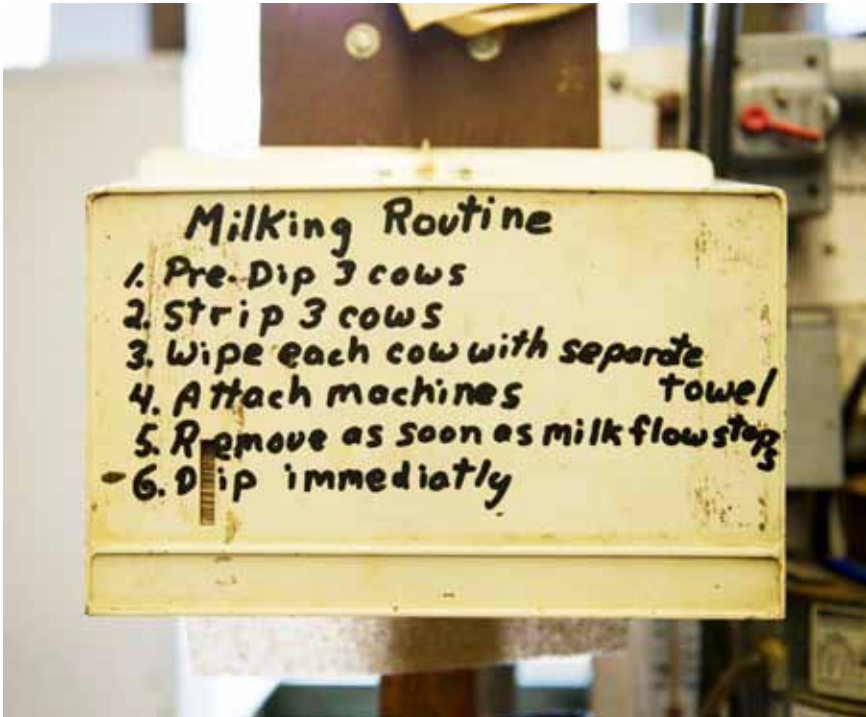 Milking Routine
1. Pre-Dip 3 cows
2. Strip 3 cows
3. Wipe each cow with separate
towel
4. Attach machines
5. Remove as soon as milk flow stops
6. Dip immediatly